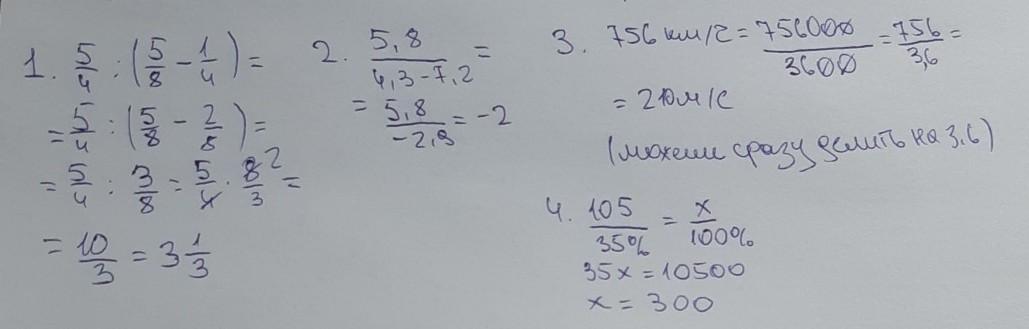 1. 5/4 : (5/8 - 1/4) =
= 5/4 : (5/8 - 2/8) =
= 5/4 : 3/8 = 5/4 · 8²/3 =
= 10/3 = 3 1/3
2. 5,8/(4,3-7,2) =
= 5,8/-2,9 = -2
3. 756 км/г = 756000/3600 = 756/3,6 =
= 210 м/с
(можем сразу делить на 3,6)
4. 105/35% = x/100%
35x = 10500
x = 300